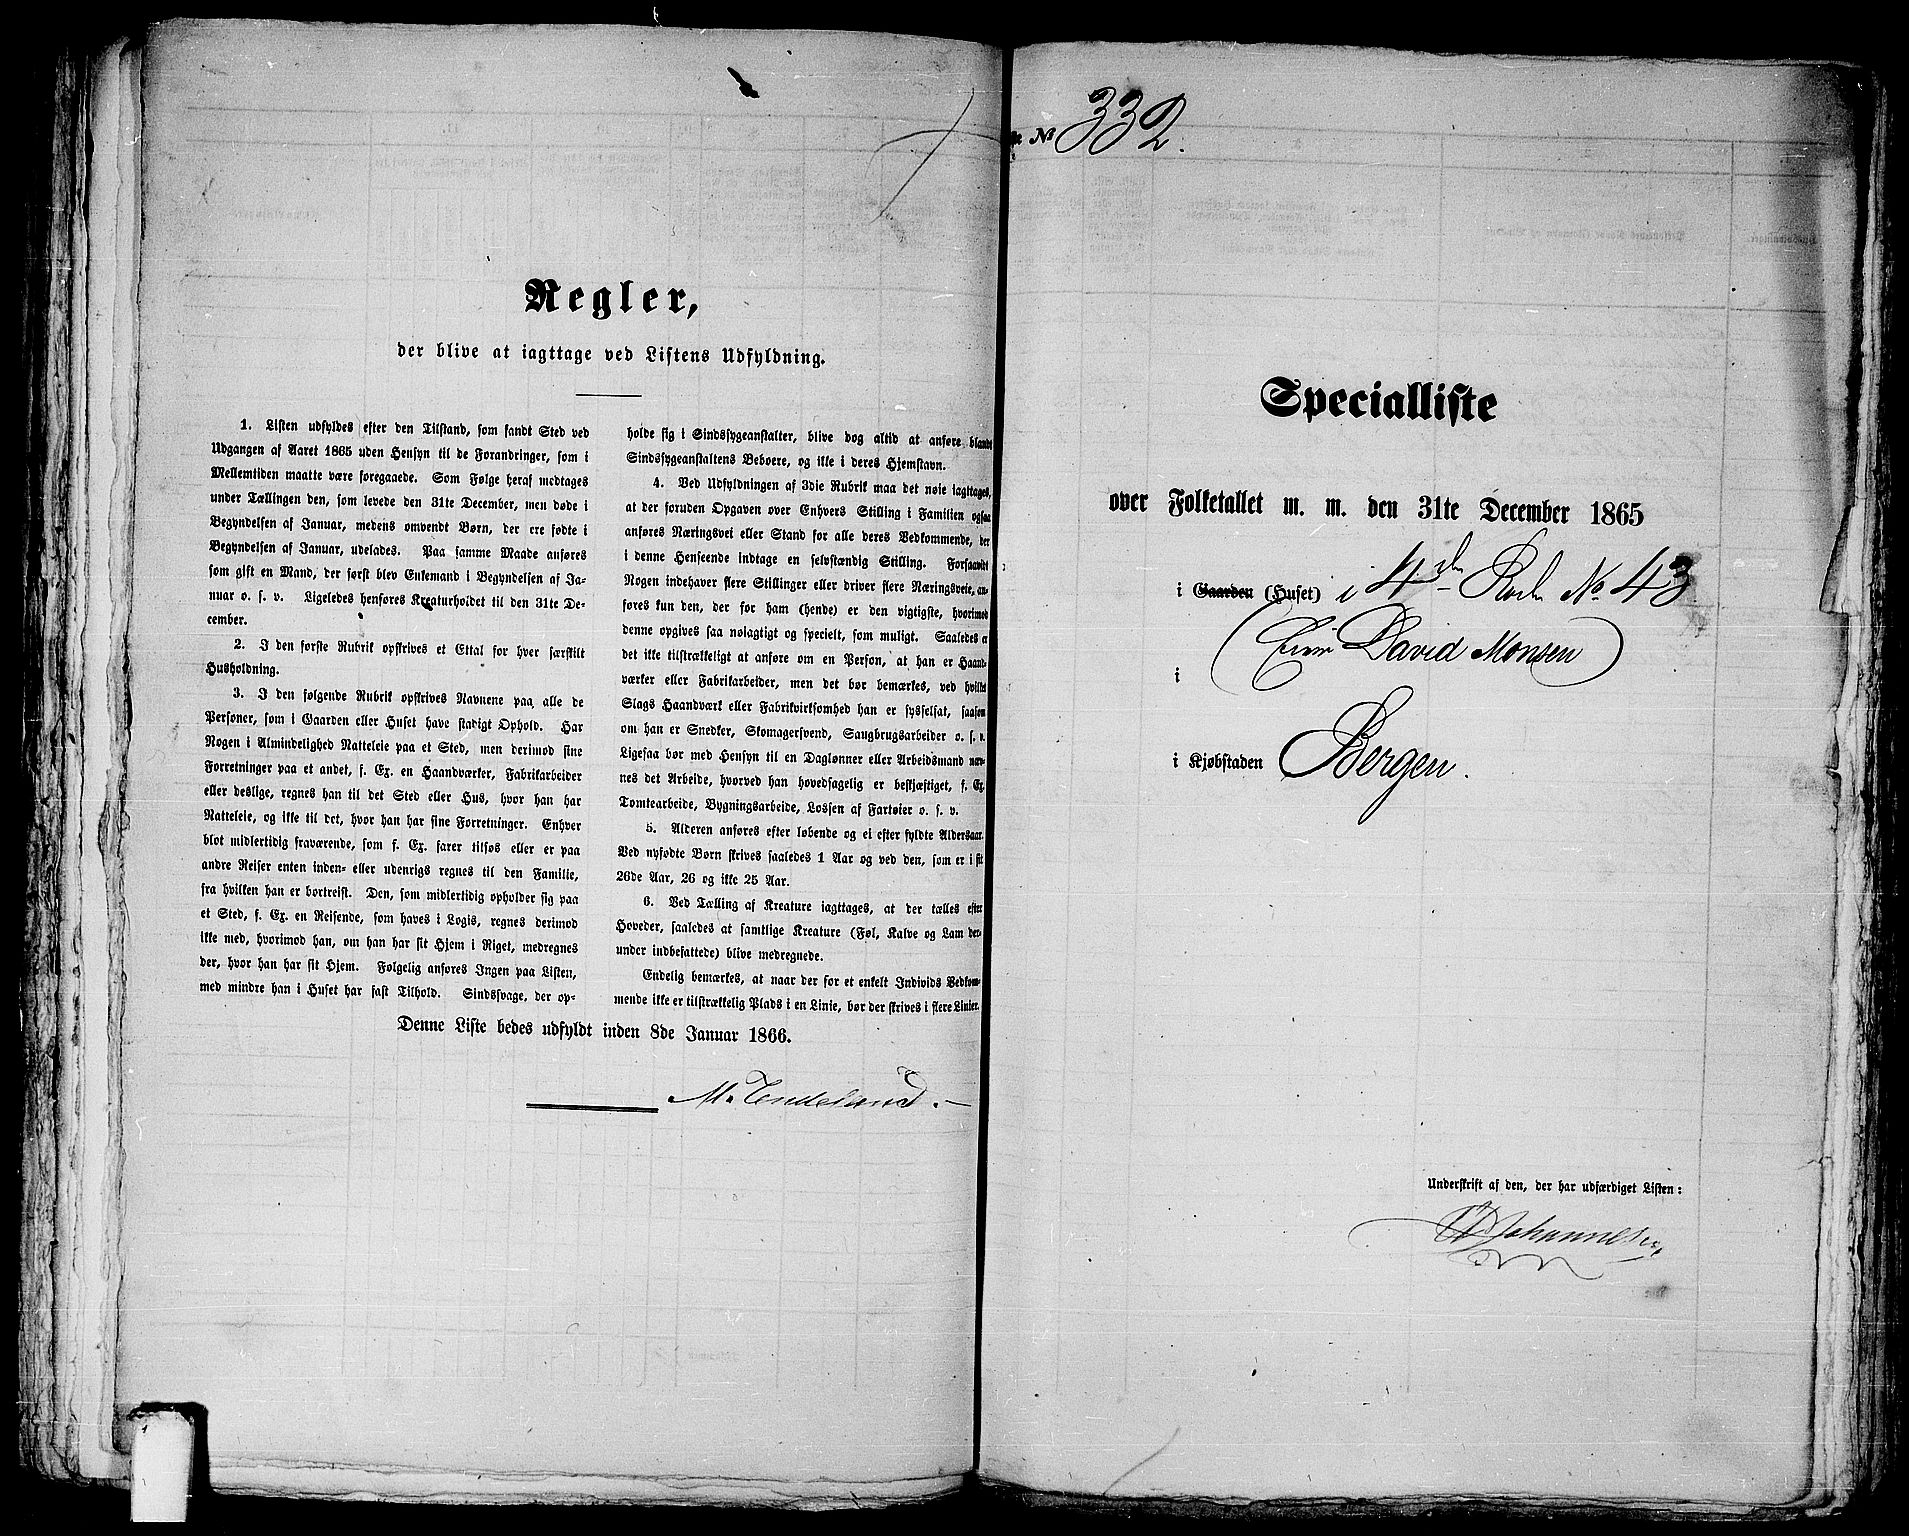 Regler,
der blive at iagttage ved Listens Udfyldning.
1. Listen udfyldes efter den Tilstand, som fandt Sted ved
Udgangen af Aaret 1865 uden Hensyn til de Forandringer, som i
Mellemtiden maatte være foregaaede. Som Følge heraf medtages
under Tællingen den, som levede den 31te December, men døde i
Begyndelsen af Januar, medens omvendt Børn, der ere fødte i
Begyndelsen af Januar, udelades. Paa samme Maade anføres
som gift en Mand, der først blev Enkemand i Begyndelsen af Ja-
nuar o. s. v. Ligeledes henføres Kreaturholdet til den 31te De-
cember.
2. I den første Rubrik opskrives et Ettal for hver særskilt
Husholdning.
3. I den følgende Rubrik opskrives Navnene paa alle de
Personer, som i Gaarden eller Huset have stadigt Ophold. Har
Nogen i Almindelighed Natteleie paa et Sted, men derimod sine
Forretninger paa et andet, f. Ex. en Haandværker, Fabrikarbeider
eller deslige, regnes han til det Sted eller Hus, hvor han har
Natteleie, og ikke til det, hvor han har sine Forretninger. Enhver
blot midlertidig fraværende, som f. Ex. farer tilsøs eller er paa
andre Reiser enten inden- eller udenrigs regnes til den Familie,
fra hvilken han er bortreist. Den, som midlertidig opholder sig paa
et Sted, f. Ex. en Reisende, som haves i Logis, regnes derimod
ikke med, hvorimod han, om han har sit Hjem i Riget, medregnes
der, hvor han har sit Hjem. Følgelig anføres Ingen paa Listen,
med mindre han i Huset har fast Tilhold. Sindssvage, der op-
holde sig i Sindssygeanstalter, blive dog altid at anføre blandt
Sindssygeanstaltens Beboere, og ikke i deres Hjemstavn.
4. Ved Udfyldningen af 3die Rubrik maa det nøie iagttages,
at der foruden Opgaven over Enhvers Stilling i Familien ogsaa
anføres Næringsvei eller Stand for alle deres Vedkommende, der
i denne Henseende indtage en selvstændig Stilling. Forsaavidt
Nogen indehaver flere Stillinger eller driver flere Næringsveie, an-
føres kun den, der for ham (hende) er den vigtigste, hvorimod
denne opgives saa nøiagtigt og specielt, som muligt. Saaledes er
det ikke tilstrækkeligt at anføre om en Person, at han er Haand-
værker eller Fabrikarbeider, men det bør bemærkes, ved hvilket
Slags Haandværk eller Fabrikvirksomhed han er sysselsat, saasom
om han er Snedker, Skomagersvend, Saugbrugsarbeider o. s. v.
Ligesaa bør med Hensyn til en Daglønner eller Arbeidsmand næv-
nes det Arbeide, hvorved han hovedsagelig er beskjæftiget, f. Ex.
Tomtearbeide, Bygningsarbeide, Lossen af Fartøier o. s. v.
5. Alderen anføres efter løbende og ei efter fyldte Aldersaar.
Ved nyfødte Børn skrives saaledes 1 Aar og ved den, som er i sit
26de Aar, 26 og ikke 25 Aar.
6. Ved Tælling af Kreature iagttages, at der tælles efter
Hoveder, saaledes at samtlige Kreature (Føl, Kalve og Lam der-
under indbefattede) blive medregnede.
Endelig bemærkes, at naar der for et enkelt Individs Vedkom-
mende ikke er tilstrækkelig Plads i en Linie, bør der skrives i flere Linier.
Denne Liste bedes udfyldt inden 8de Januar 1866.
№ 332.
Specialliste
over Folketallet m. m. den 31te December 1865
i Gaarden (Huset) i 4de Rode No 43
i (Eier David Monsen)
i Kjøbstaden Bergen.
Underskrift af den, der har udfærdiget Listen:
Johannesen